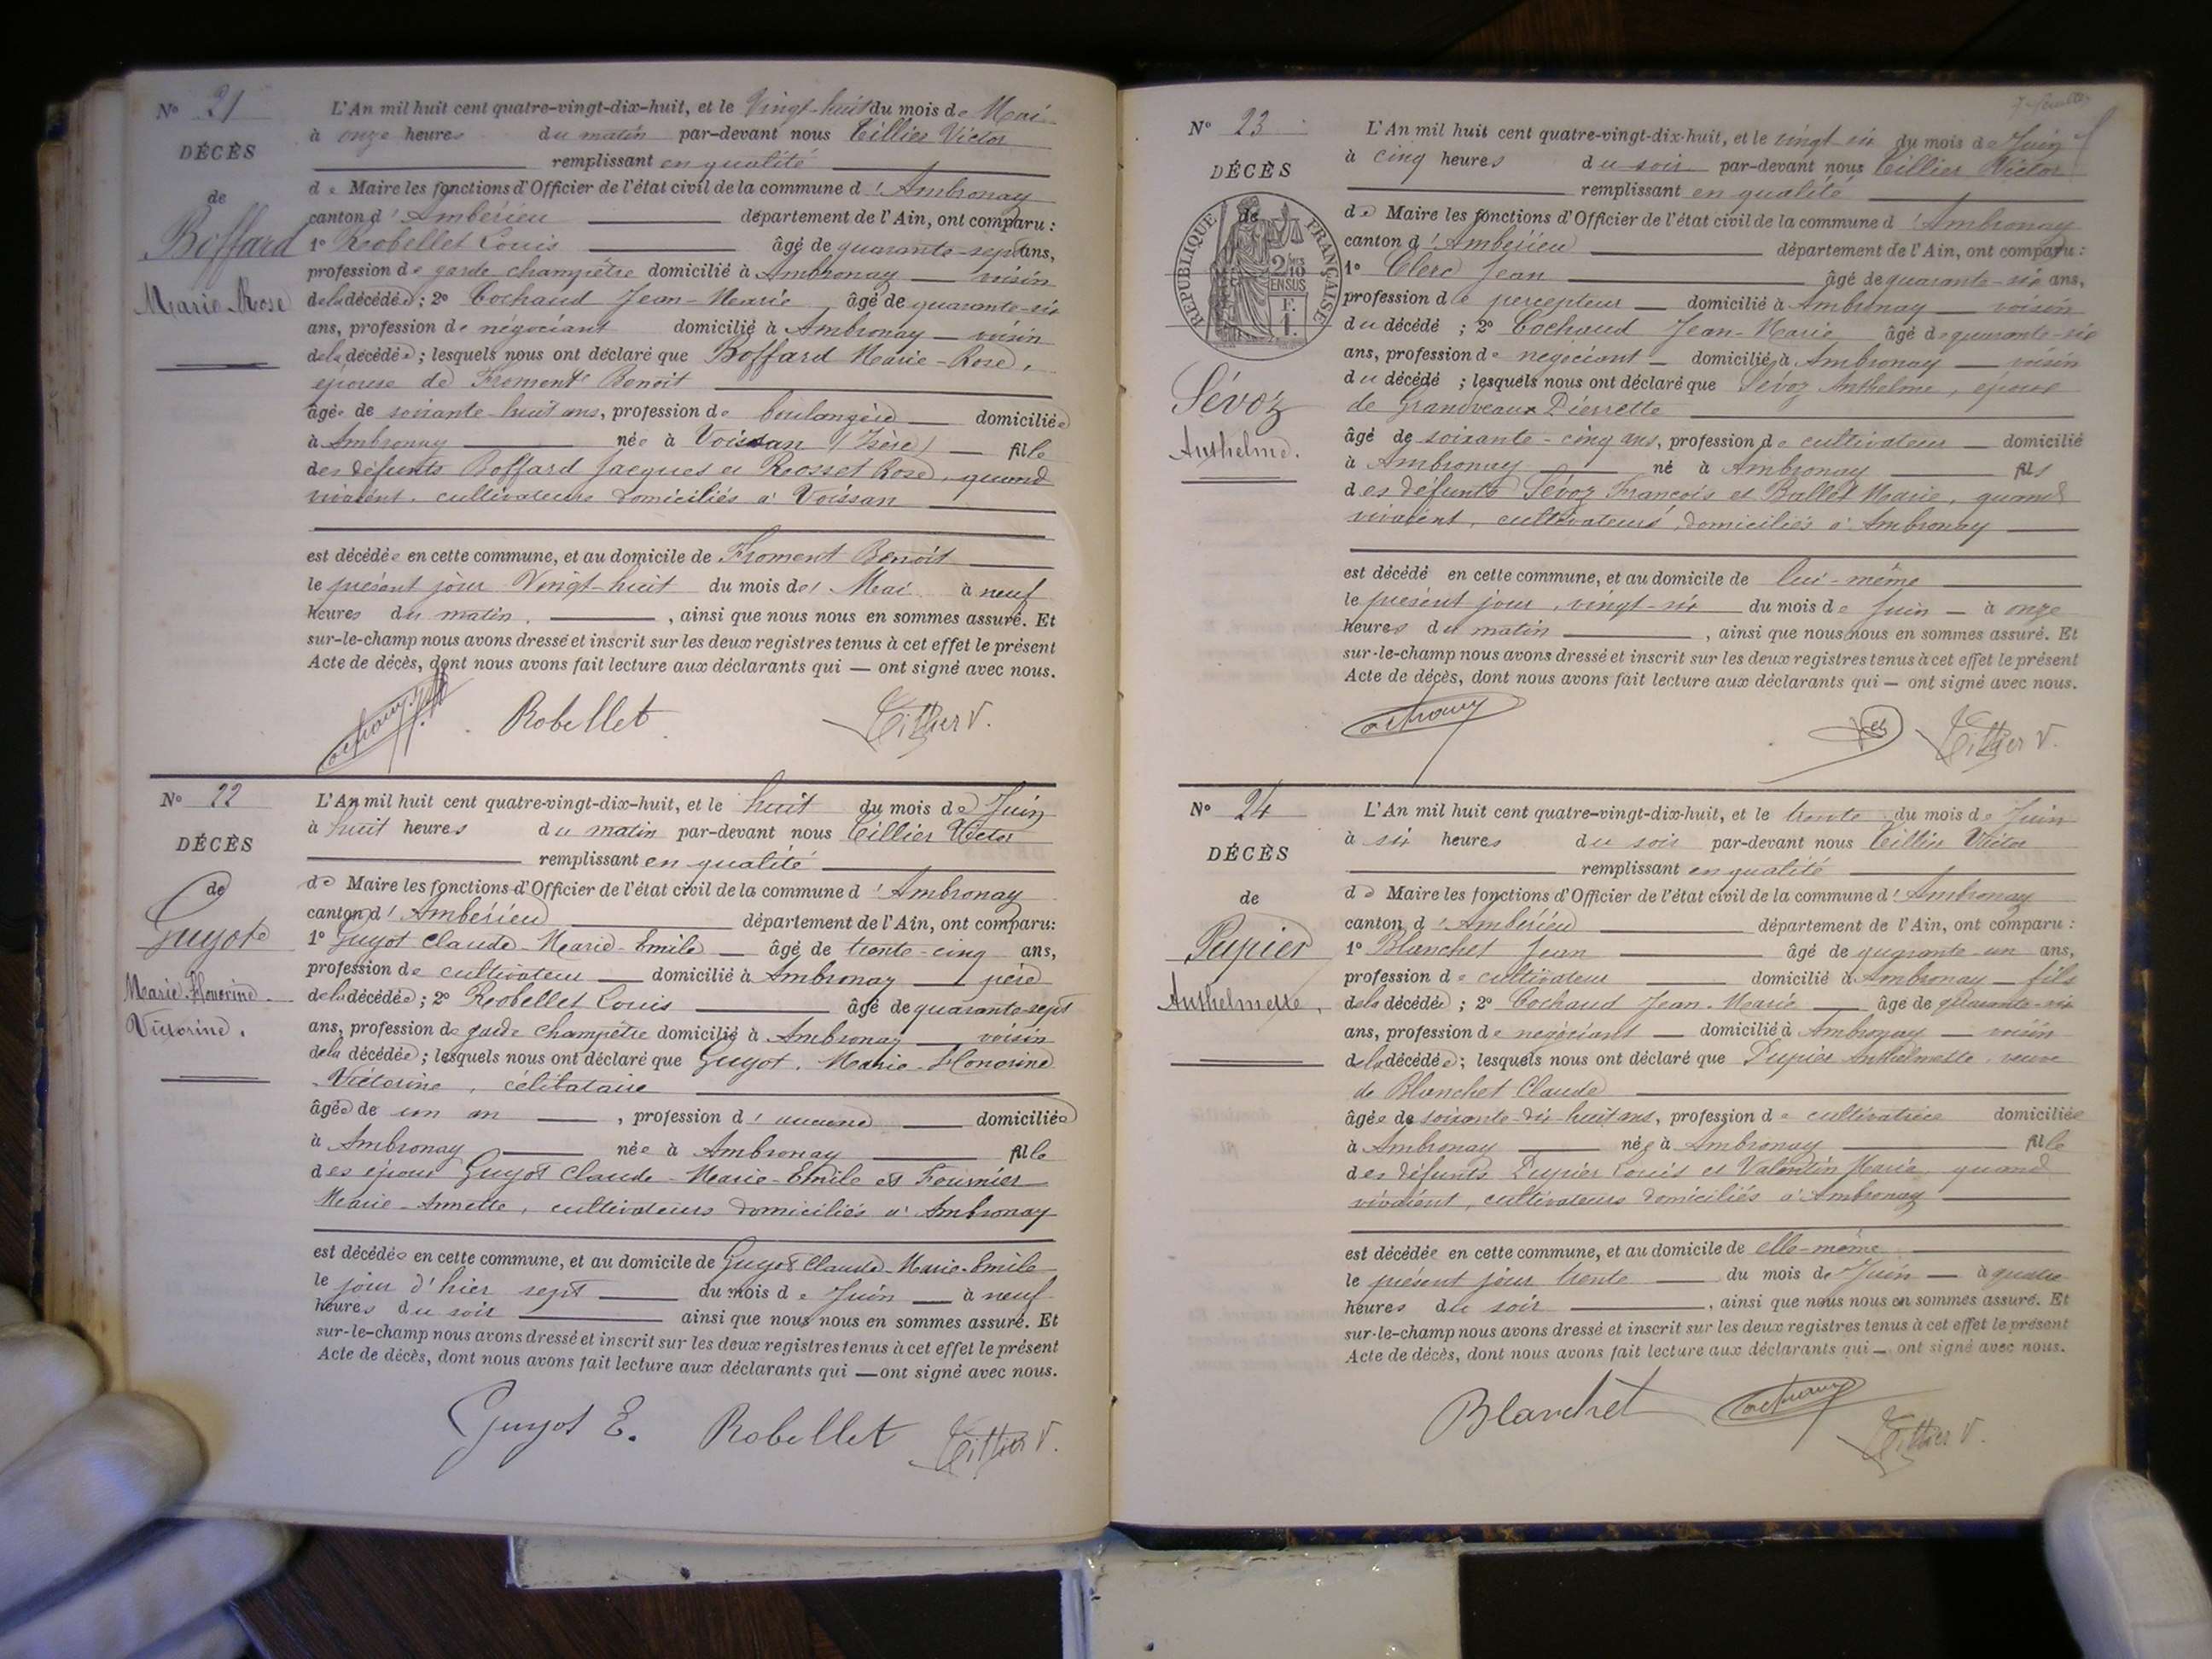 N° 21
DÉCÈS
de
Boffard
Marie-Rose
L'An mil huit cent quatre-vingt-dix-huit, et le Vingt-huit du mois de Mai
à onze heures du matin par-devant nous Tillier Victor
remplissant en qualité
de Maire les fonctions d'Officier de l'état civil de la commune d'Ambronay
canton d'Ambérieu département de l'Ain, ont comparu :
1° Robellet Louis âgé de quarante-sept ans,
profession de garde champêtre domicilié à Ambronay voisin
de la décédée ; 2° Cochaud Jean-Marie âgé de quarante-six
ans, profession de négociant domicilié à Ambronay voisin
de la décédée ; lesquels nous ont déclaré que Boffard Marie-Rose,
épouse de Froment Benoit
âgée de soixante-huit ans, profession de boulangère domiciliée
à Ambronay née à Voissan (Isère) fille
des défunts Boffard Jacques et Rosset Rose, quand
vivaient cultivateurs domiciliés à Voissan
est décédée en cette commune, et au domicile de Froment Benoit
le présent jour Vingt-huit du mois de Mai à neuf
heures du matin, ainsi que nous nous en sommes assuré. Et
sur-le-champ nous avons dressé et inscrit sur les deux registres tenus à cet effet le présent
Acte de décès, dont nous avons fait lecture aux déclarants qui — ont signé avec nous.
Robellet Tillier V.
N° 22
DÉCÈS
de
Guyot
Marie-Honorine
Victorine.
L'An mil huit cent quatre-vingt-dix-huit, et le huit du mois de Juin
à huit heures du matin par-devant nous Tillier Victor
remplissant en qualité
de Maire les fonctions d'Officier de l'état civil de la commune d'Ambronay
canton d'Ambérieu département de l'Ain, ont comparu :
1° Guyot Claude-Marie-Emile âgé de trente-cinq ans,
profession de cultivateur domicilié à Ambronay père
de la décédée ; 2° Robellet Louis âgé de quarante-sept
ans, profession de garde champêtre domicilié à Ambronay voisin
de la décédée ; lesquels nous ont déclaré que Guyot, Marie-Honorine
Victorine, célibataire
âgée de un an, profession d'aucune domiciliée
à Ambronay née à Ambronay fille
des époux Guyot Claude-Marie-Emile et Fournier
Marie-Annette, cultivateurs domiciliés à Ambronay
est décédée en cette commune, et au domicile de Guyot Claude-Marie-Emile
le jour d'hier sept du mois de Juin à neuf
heures du soir ainsi que nous nous en sommes assuré. Et
sur-le-champ nous avons dressé et inscrit sur les deux registres tenus à cet effet le présent
Acte de décès, dont nous avons fait lecture aux déclarants qui — ont signé avec nous.
Guyot E. Robellet Tillier V.
N° 23
DÉCÈS
de
REPUBLIQUE FRANÇAISE
2/10 EN SUS
F.
1.
Sévoz
Anthelme.
L'An mil huit cent quatre-vingt-dix-huit, et le vingt-six du mois de Juin
à cinq heures du soir par-devant nous Tillier Victor
remplissant en qualité
de Maire les fonctions d'Officier de l'état civil de la commune d'Ambronay
canton d'Ambérieu département de l'Ain, ont comparu :
1° Clerc Jean âgé de quarante-six ans,
profession de percepteur domicilié à Ambronay voisin
du décédé ; 2° Cochaud Jean-Marie âgé de quarante-six
ans, profession de négociant domicilié à Ambronay voisin
du décédé ; lesquels nous ont déclaré que Sévoz Anthelme, époux
de Grandveaux Pierrette
âgé de soixante-cinq ans, profession de cultivateur domicilié
à Ambronay né à Ambronay fils
des défunts Sévoz François et Ballet Marie, quand
vivaient, cultivateurs, domiciliés à Ambronay
est décédé en cette commune, et au domicile de lui-même
le présent jour, vingt-six du mois de Juin à onze
heures du matin, ainsi que nous nous en sommes assuré. Et
sur-le-champ nous avons dressé et inscrit sur les deux registres tenus à cet effet le présent
Acte de décès, dont nous avons fait lecture aux déclarants qui — ont signé avec nous.
Tillier V.
N° 24
DÉCÈS
de
Pupier
Anthelmette,
L'An mil huit cent quatre-vingt-dix-huit, et le trente du mois de Juin
à six heures du soir par-devant nous Tillier Victor
remplissant en qualité
de Maire les fonctions d'Officier de l'état civil de la commune d'Ambronay
canton d'Ambérieu département de l'Ain, ont comparu :
1° Blanchet Jean âgé de quarante-un ans,
profession de cultivateur domicilié à Ambronay fils
de la décédée ; 2° Cochaud Jean-Marie âgé de quarante-six
ans, profession de négociant domicilié à Ambronay voisin
de la décédée ; lesquels nous ont déclaré que Pupier Anthelmette, veuve
de Blanchet Claude
âgée de soixante-dix-huit ans, profession de cultivatrice domiciliée
à Ambronay née à Ambronay fille
des défunts Pupier Louis et Valentin Marie, quand
vivaient, cultivateurs domiciliés à Ambronay
est décédée en cette commune, et au domicile de elle-même
le présent jour trente du mois de Juin à quatre
heures du soir, ainsi que nous nous en sommes assuré. Et
sur-le-champ nous avons dressé et inscrit sur les deux registres tenus à cet effet le présent
Acte de décès, dont nous avons fait lecture aux déclarants qui — ont signé avec nous.
Blanchet Tillier V.